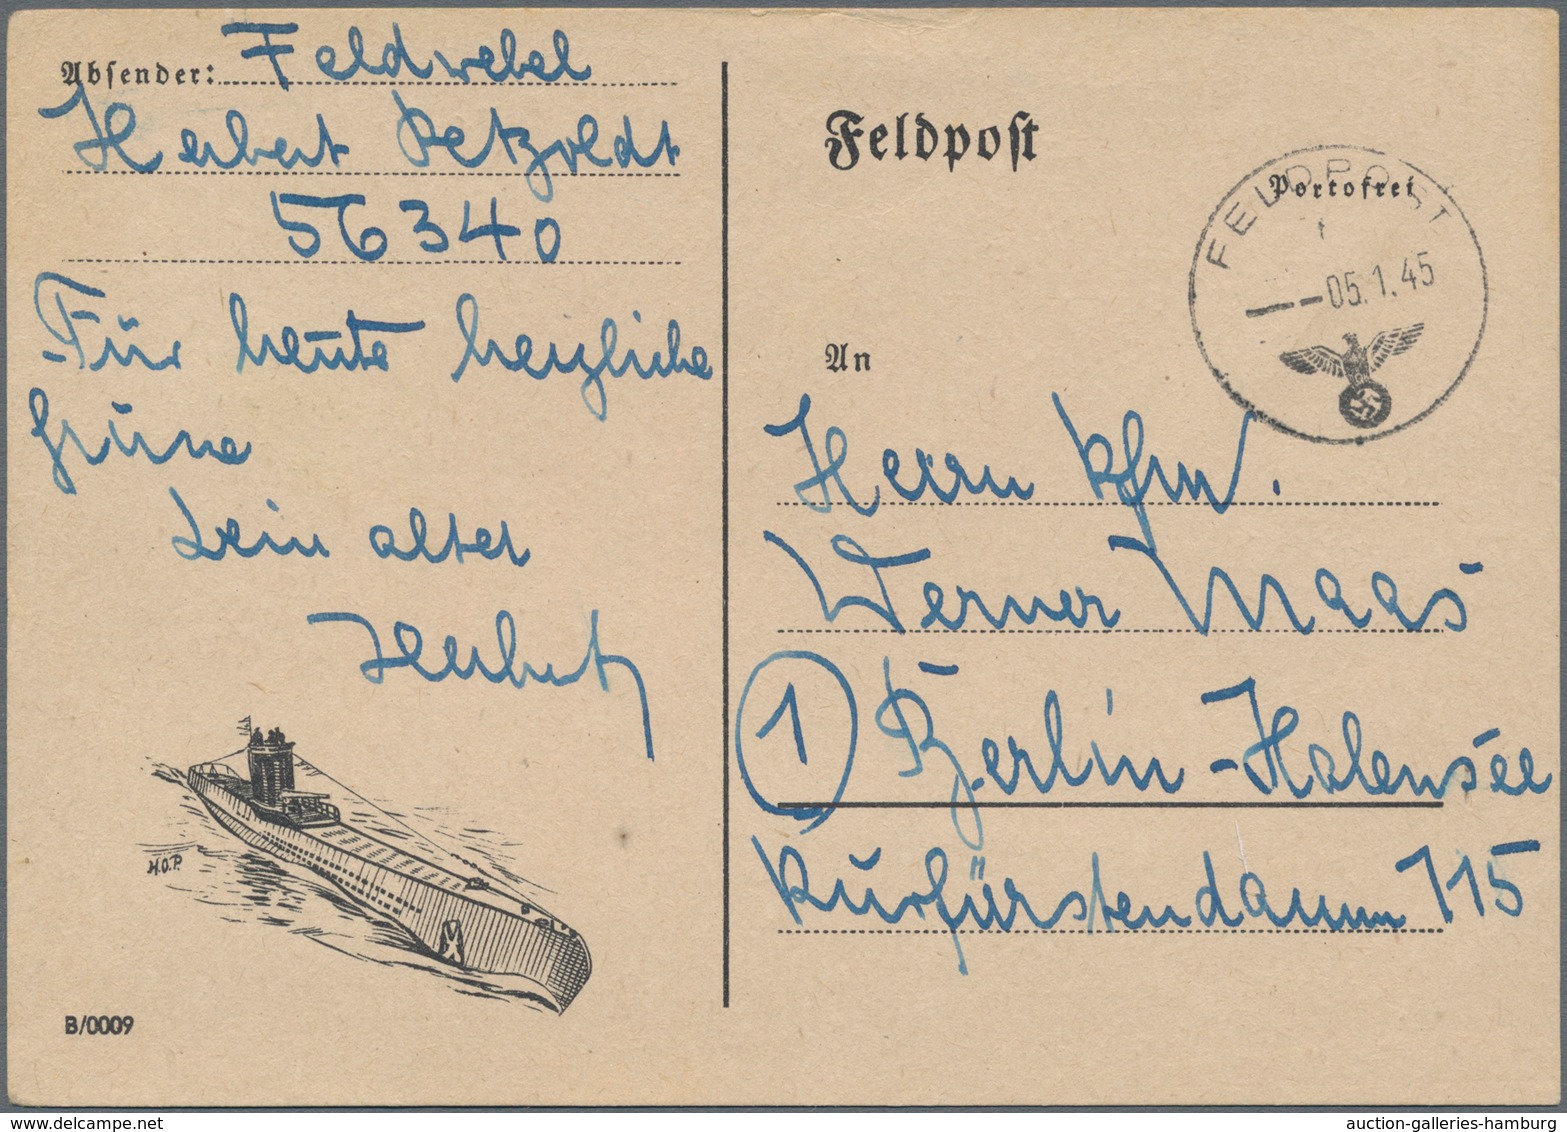 Absender: Feldwebel
Herbert Petzoldt
56340
Für heute herzliche
Grüße
Dein alter
Herbert
H.O.P.
B/0009
Feldpost
Portofrei
FELDPOST
--05.1.45
An
Herrn Kfm.
Werner Maas
1 Berlin-Halensee
Kurfürstendamm 115
auction-galleries-hamburg